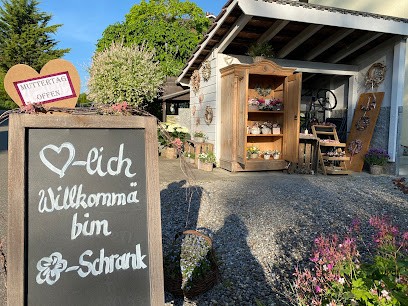 MUTTERTAG
OFFEN
♡-lich
Willkommä
bim
✿-Schrank